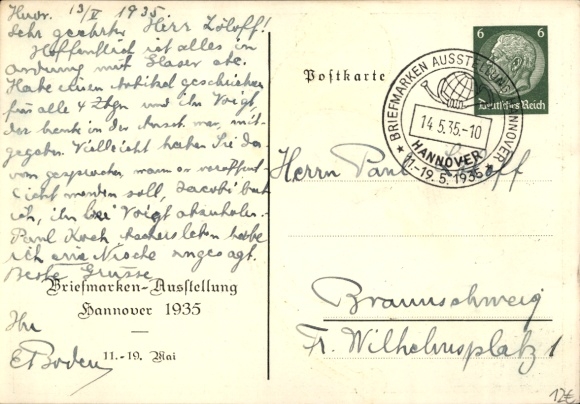 Hnvr. 13/V 1935
Sehr geehrter Herr Loloff!
Hoffentlich ist alles in
Ordnung mit Glaser etc.
Habe einen Artikel geschrieben
für alle 4 Ztgn und ihn Voigt,
der heute in der Ausst. war, mit-
gegeben. Vielleicht haben Sie da-
von gesprochen, wann er veröffent-
licht werden soll, Jacobi bat
ich, ihn bei Voigt abzuholen.
Paul Koch Aschersleben habe
ich eine angesagt.
Beste Grüsse
Briefmarken-Ausstellung
Hannover 1935
Ihr
E. Boden
11.-19. Mai
Postkarte
6 6
Deutsches Reich
BRIEFMARKEN AUSSTELLUNG HANNOVER
14.5.35.-10
HANNOVER
11.-19.5.1935
Herrn Paul Loloff
Braunschweig
Fr. Wilhelmsplatz 1
12€